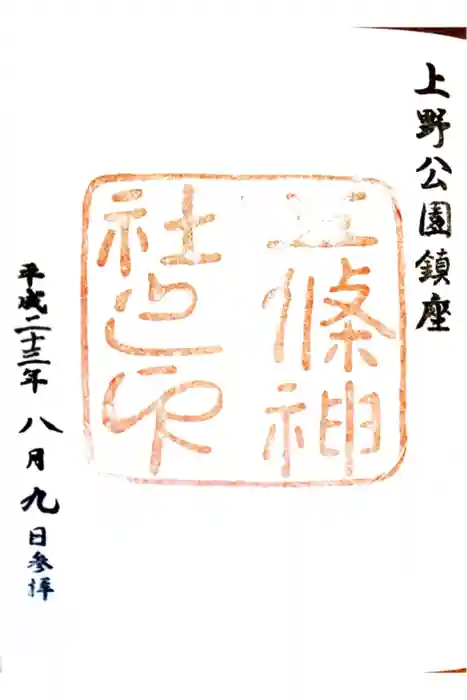 上野公園鎮座
五條神
社之印
平成二十三年八月九日参拝